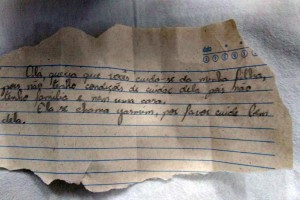 Olá queria que vocês cuida-se da minha filha,
pois não tenho condições de cuidar dela pois não
tenho familia e nem uma casa.
Ela se chama yasmim, por favor cuide bem
dela.